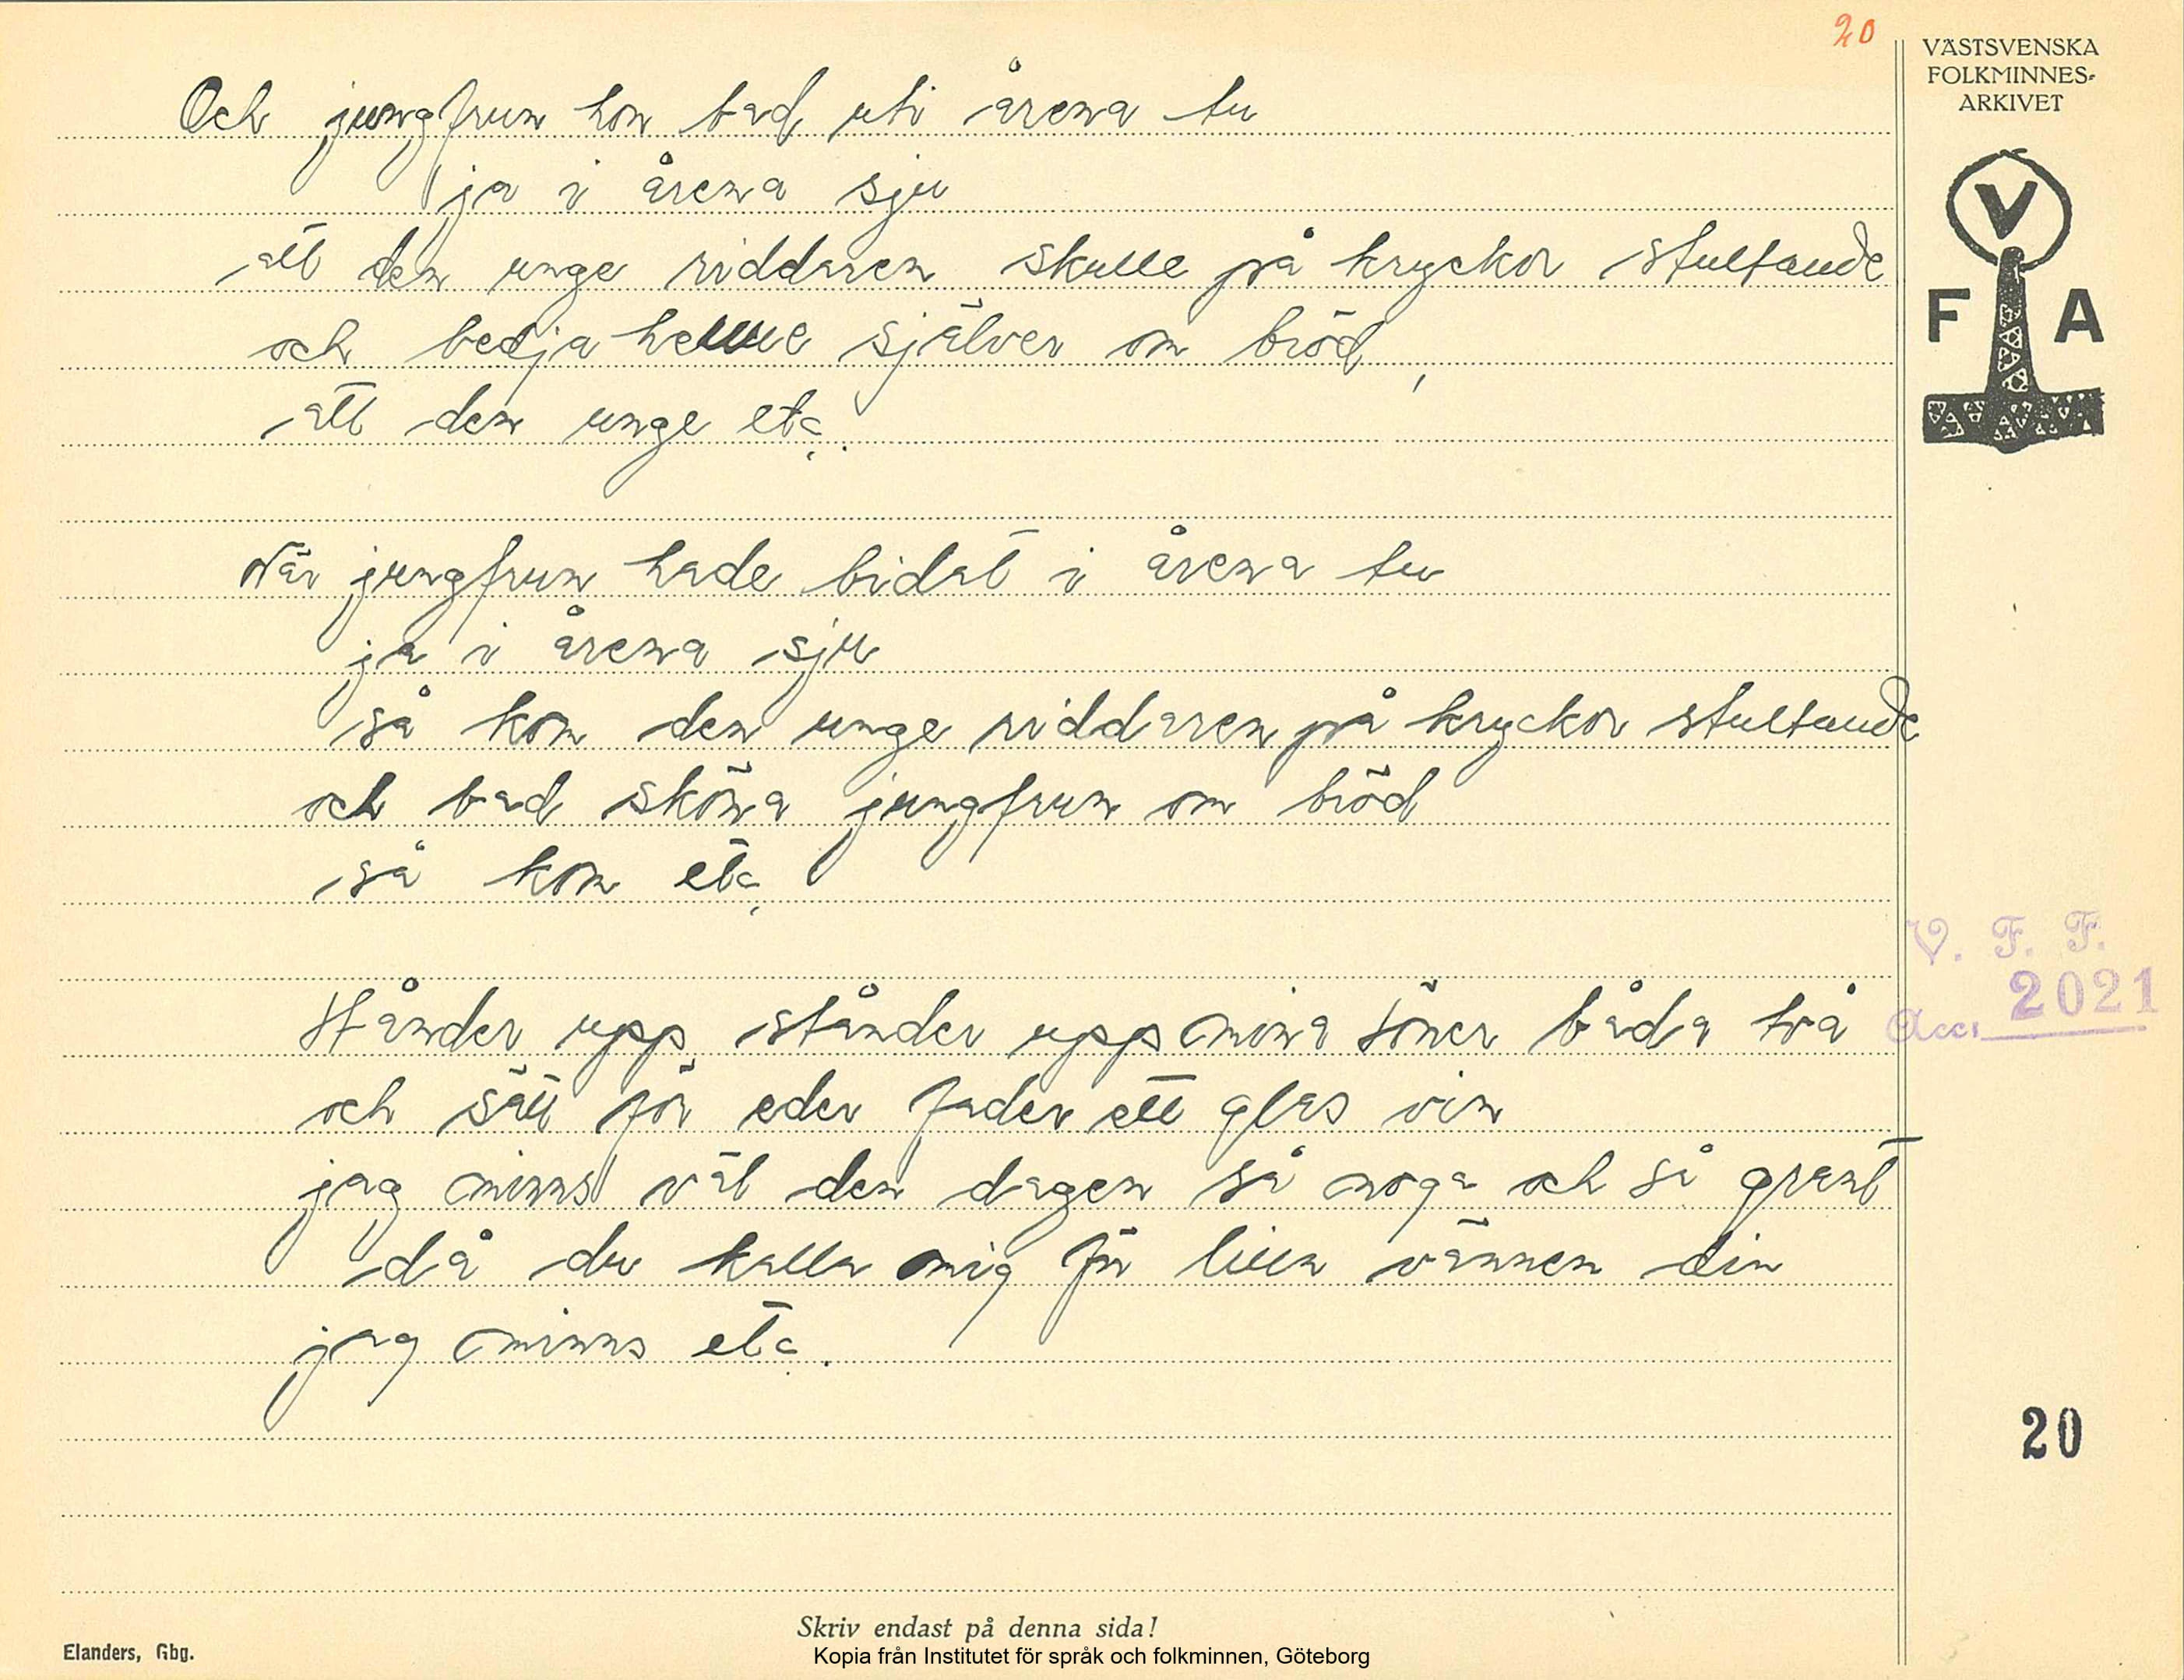 20
VÄSTSVENSKA
FOLKMINNES-
ARKIVET
V
F A
Och jungfrun hon bad uti årena tu
ja i årena sju
att den unge riddaren skulle på kryckor stultande
och bedja henne själver om bröd,
att den unge etc.
När jungfrun hade bidat i årena tu
ja i årena sju
så kom den unge riddaren på kryckor stultande
och bad sköna jungfrun om bröd
så kom etc.
V. F. F.
Acc. 2021
Stånder upp, stånder upp mina söner båda två
och sätt för eder fader ett glas vin
jag minns väl den dagen så noga och så grant
då du kalla mig för lilla vännen din
jag minns etc.
20
Skriv endast på denna sida!
Elanders, Gbg.
Kopia från Institutet för språk och folkminnen, Göteborg